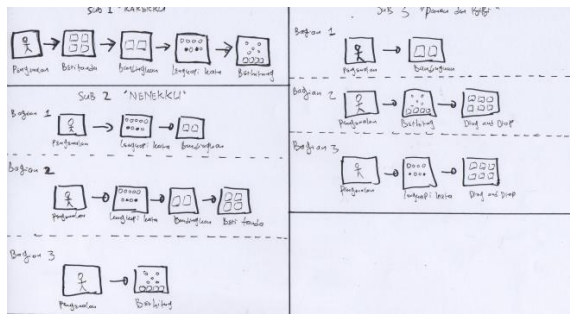 SUB 1 "KAKEKKU"
Pengenalan Beri tanda Bandingkan Lengkapi kata Berhitung
SUB 2 "NENEKKU"
Bagian 1
Pengenalan Lengkapi kata Bandingkan
Bagian 2
Pengenalan Lengkapi kata Bandingkan Beri tanda
Bagian 3
Pengenalan Berhitung
SUB 3 "Paman dan
Bagian 1
Pengenalan Bandingkan
Bagian 2
Pengenalan Berhitung Drag and Drop
Bagian 3
Pengenalan Lengkapi kata Drag and Drop